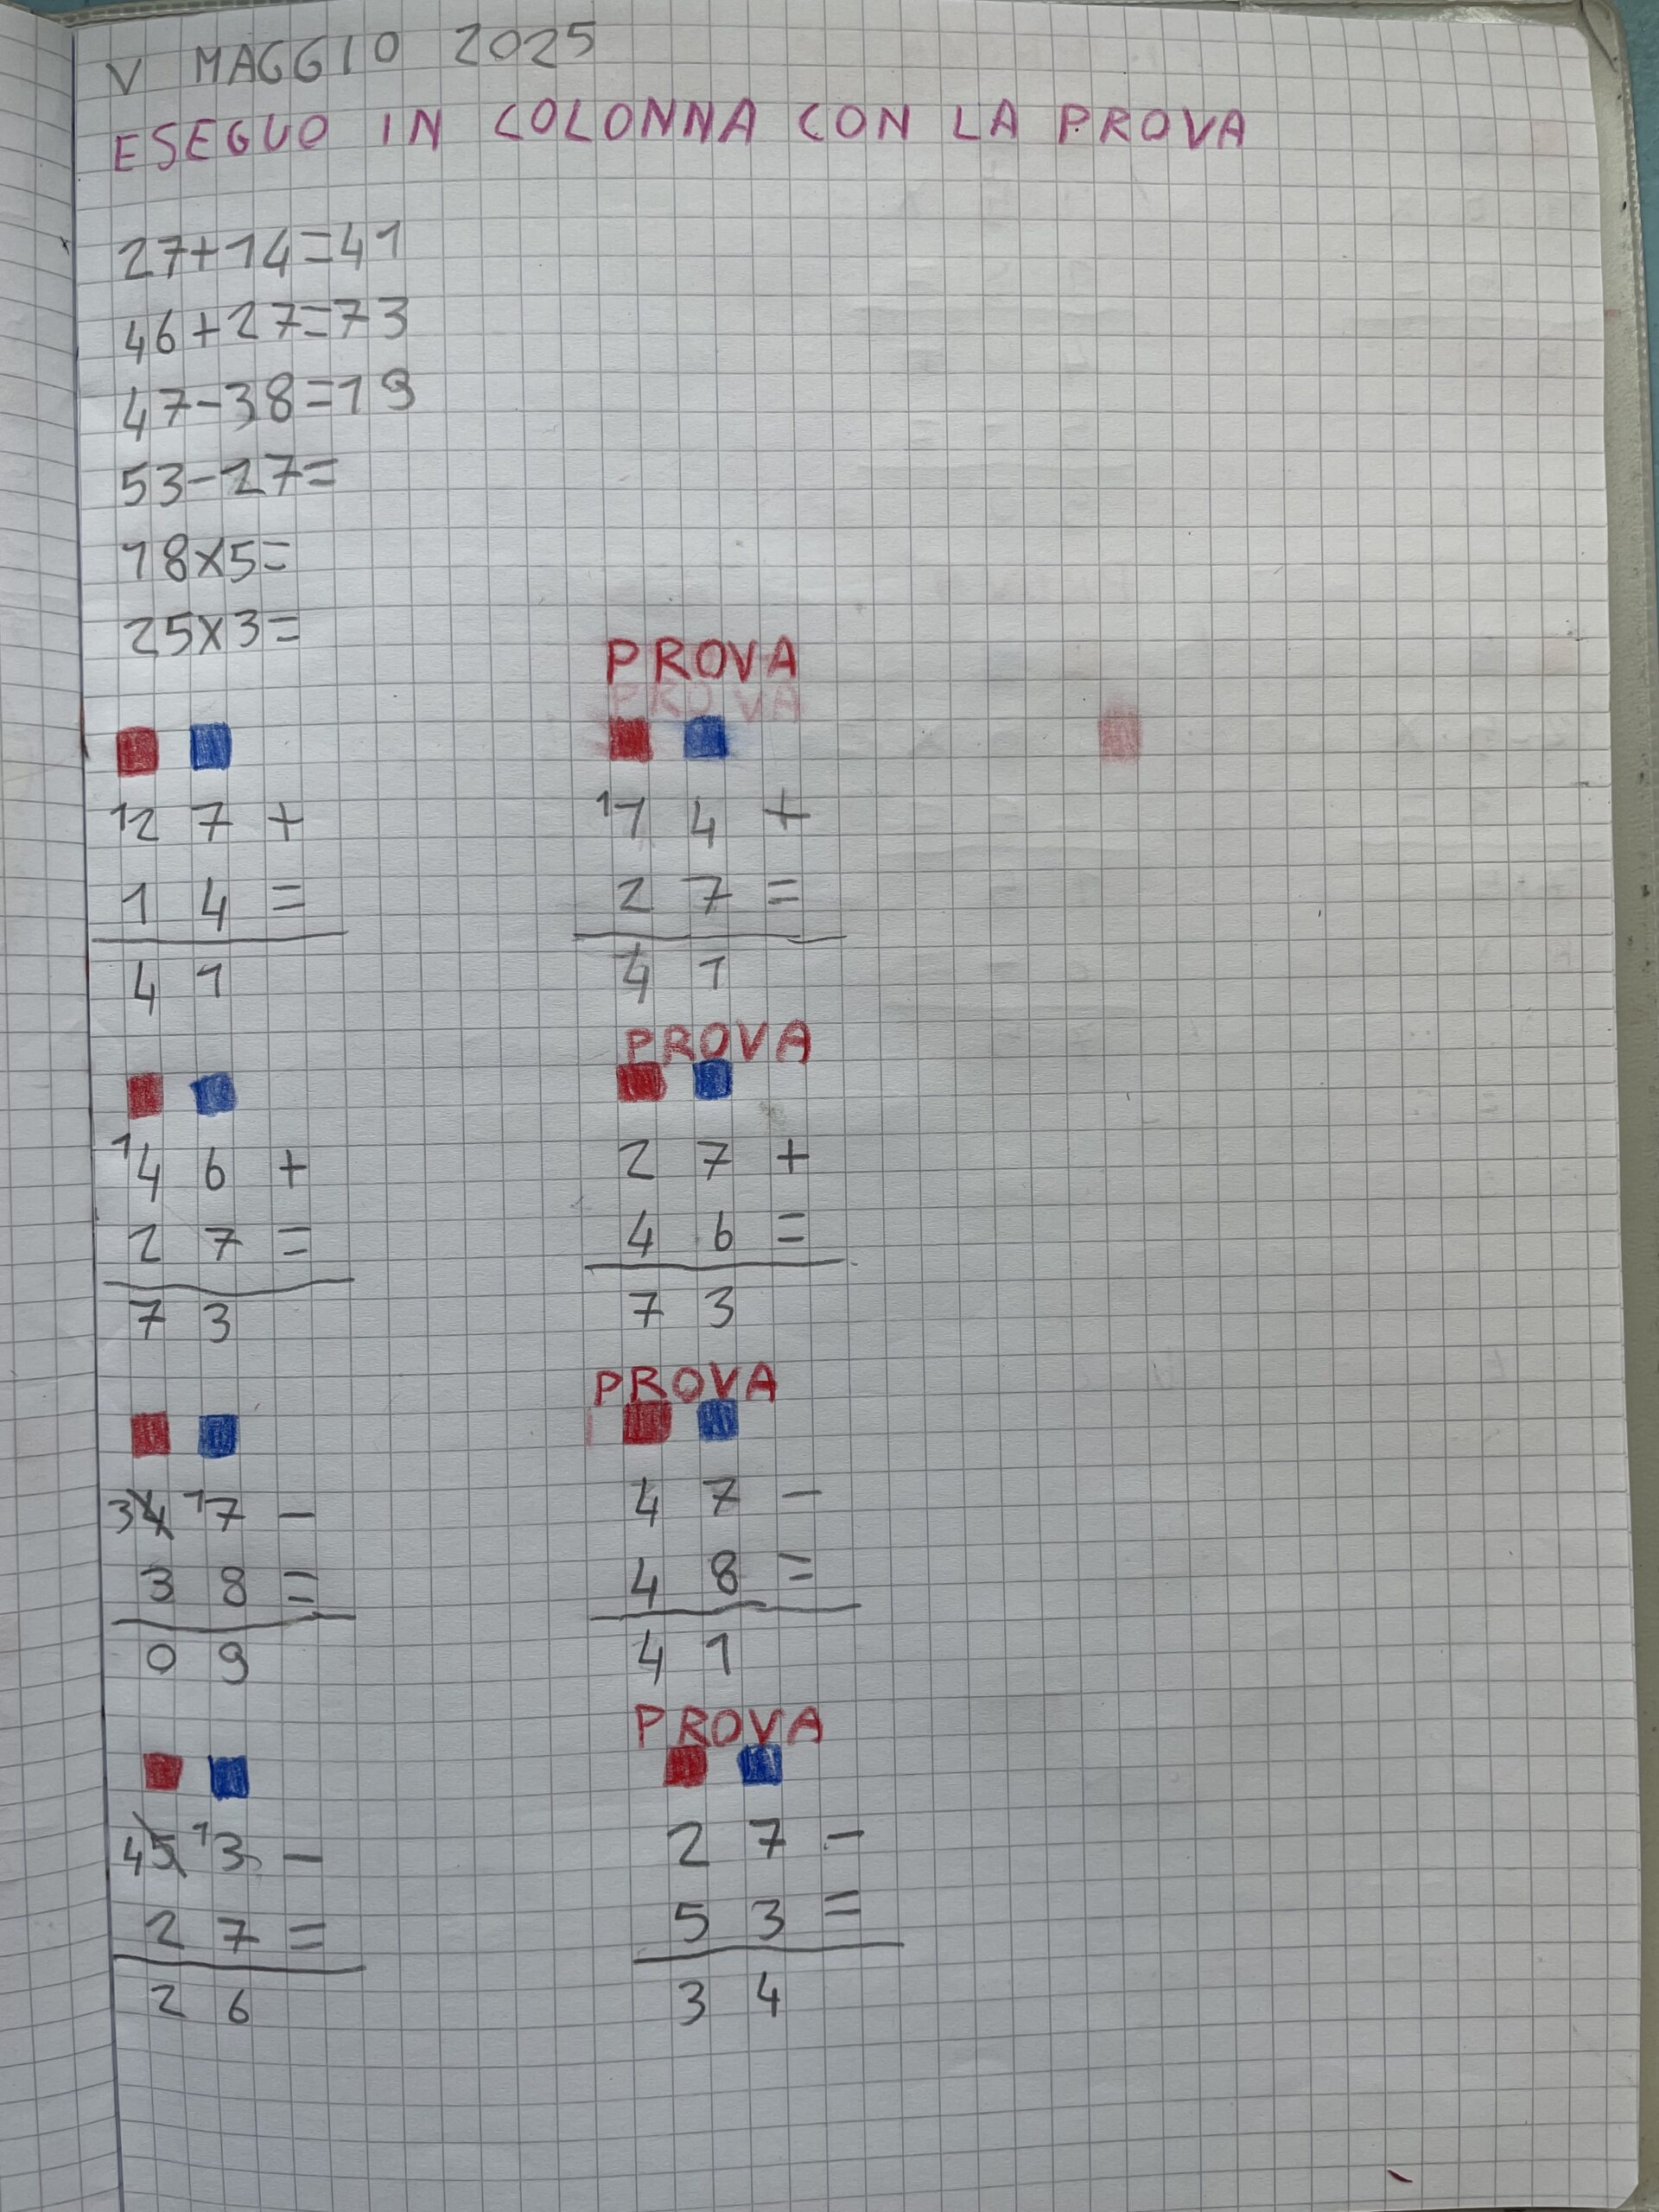 V MAGGIO 2025
ESEGUO IN COLONNA CON LA PROVA
27+14=41
46+27=73
47-38=19
53-27=
18x5=
25x3=
PROVA
12 7 +
1 4 =
4 1
11 4 +
2 7 =
4 1
PROVA
14 6 +
2 7 =
7 3
2 7 +
4 6 =
7 3
PROVA
34 17 -
3 8 =
0 9
4 7 -
4 8 =
4 1
PROVA
45 13 -
2 7 =
2 6
2 7 -
5 3 =
3 4